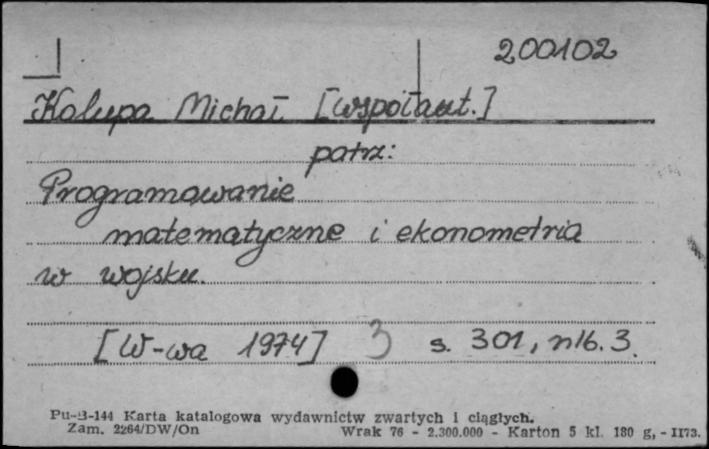 200102
Kolupa Michał [współaut.]
patrz:
Programowanie
matematyczne i ekonometria
w wojsku.
[W-wa 1974] 3 s. 301, nlb. 3.
Pu-B-144 Karta katalogowa wydawnictw zwartych i ciągłych.
Zam. 2264/DW/On Wrak 76 - 2.300.000 - Karton 5 kl. 180 g, - II73.